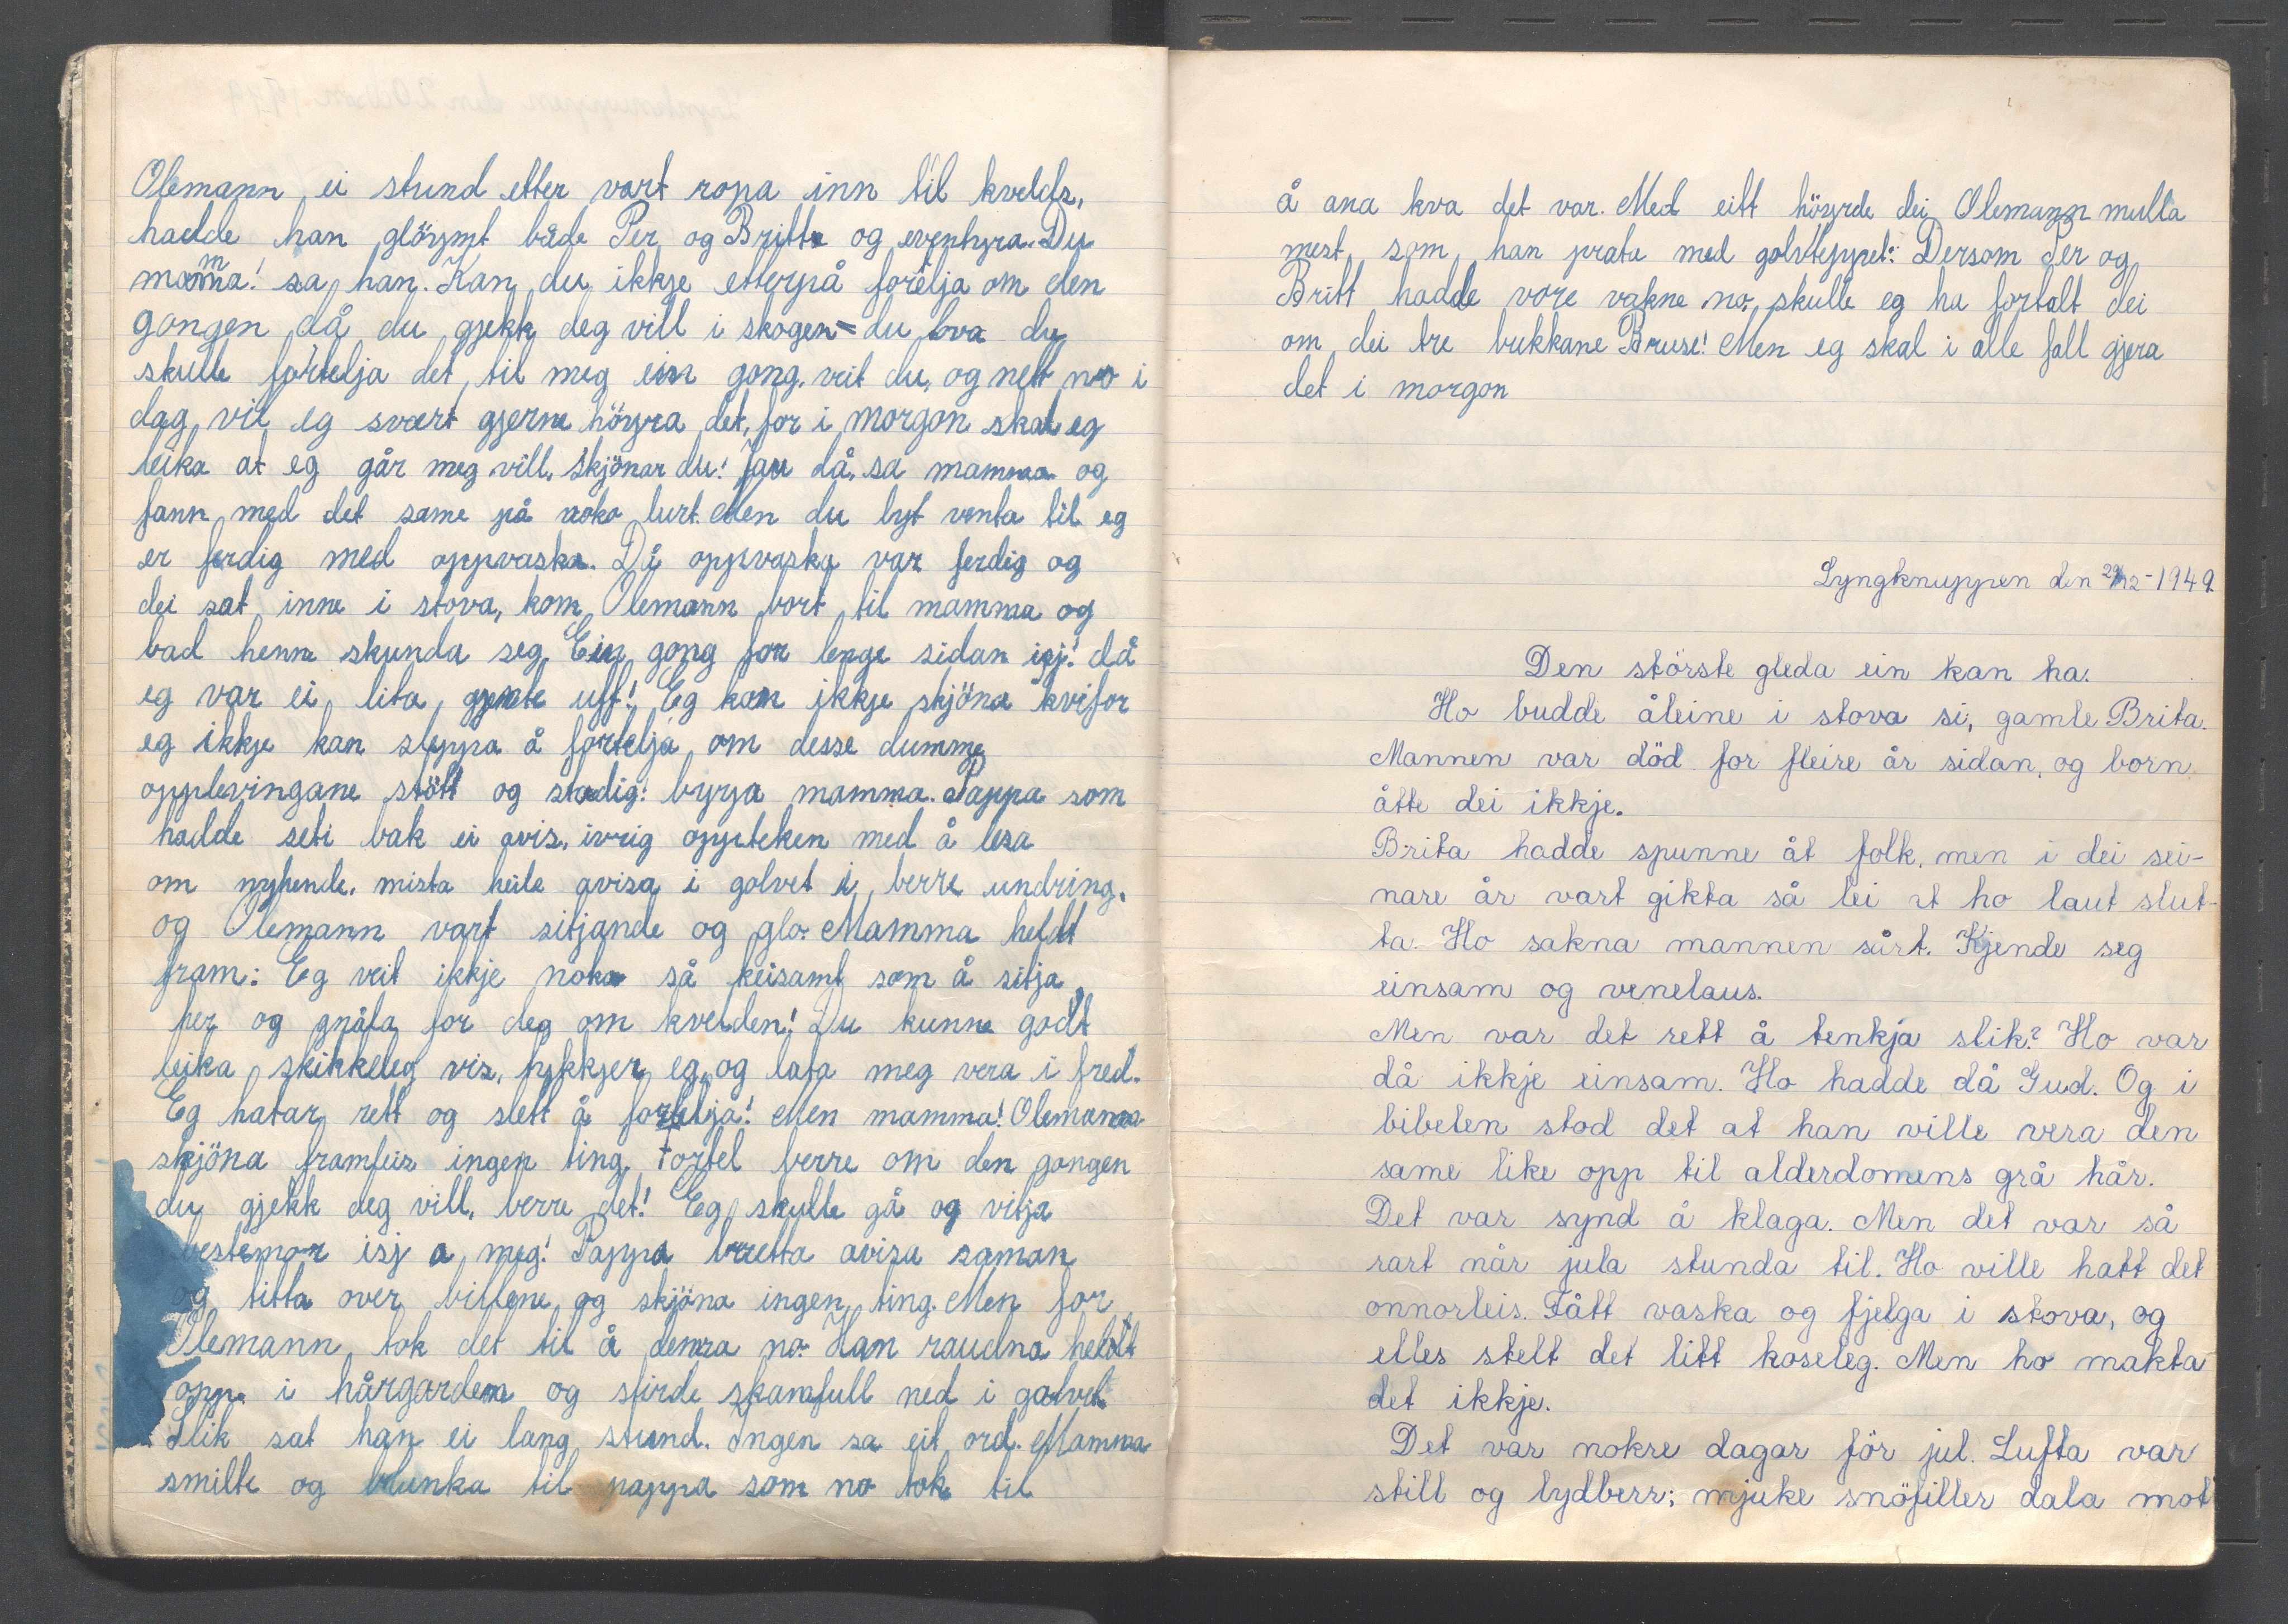 Olemann ei stund etter vart ropa inn til kvelds,
hadde han glöymt både Per og Britt og eventyra. Du
mamma! sa han. Kan du ikkje etterpå forelja om den
gongen då du gjekk deg vill i skogen = du lova du
skulle fortelja det til meg ein gong, veit du, og nett no i
dag vil eg svært gjerne höyra det, for i morgon skal eg
leika at eg går meg vill, skjönar du! Jau då, sa mamma og
fann med det same på noko lurt. Men du lyt venta til eg
er ferdig med oppvaska. Då oppvaska var ferdig og
dei sat inne i stova, kom Olemann bort til mamma og
bad henne skunda seg. Ein gong for lenge sidan isj! då
eg var ei lita gjente uff! Eg kan ikkje skjöna kvifor
eg ikkje kan sleppa å fortelja om desse dumme
opplevingane stött og stadig! byrja mamma. Pappa som
hadde seti bak ei avis, ivrig oppteken med å lesa
om nyhende, mista heile avisa i golvet i berre undring,
og Olemann vart sitjande og glo. Mamma heldt
fram: Eg veit ikkje noko så keisamt som å sitja
her og gnåla for deg om kvelden! Du kunne godt
leika skikkeleg vis, tykkjer eg, og lata meg vera i fred.
Eg hatar rett og slett å fortelja! Men mamma! Olemann
skjöna framleis ingen ting. Fortel berre om den gongen
du gjekk deg vill, berre det! Eg skulle gå og vitja
bestemor isj a meg! Pappa bretta avisa saman
og titta over brillene og skjöna ingen ting. Men for
Olemann tok det til å demra no. Han raudna heldt
opp i hårgarden og stirde skamfull ned i golvet.
Slik sat han ei lang stund. Ingen sa eit ord. Mamma
smilte og blunka til pappa som no tok til
å ana kva det var. Med eitt höyrde dei Olemann mulla
mest som han prata med golvteppet: Dersom Per og
Britt hadde vore vakne no, skulle eg ha fortalt dei
om dei tre bukkane Bruse! Men eg skal i alle fall gjera
det i morgon
Lyngknuppen den 2/12-1949
Den störste gleda ein kan ha.
Ho budde åleine i stova si, gamle Brita.
Mannen var död for fleire år sidan, og born
åtte dei ikkje.
Brita hadde spunne åt folk, men i dei sei-
nare år vart gikta så lei at ho laut slut-
ta. Ho sakna mannen sårt. Kjende seg
einsam og venelaus.
Men var det rett å tenkja slik? Ho var
då ikkje einsam. Ho hadde då Gud. Og i
bibelen stod det at han ville vera den
same like opp til alderdomens grå hår.
Det var synd å klaga. Men det var så
rart når jula stunda til. Ho ville hatt det
onnorleis. Fått vaska og fjelga i stova, og
elles stelt det litt koseleg. Men ho makta
det ikkje.
Det var nokre dagar för jul. Lufta var
still og lydberr; mjuke snöfiller dala mot